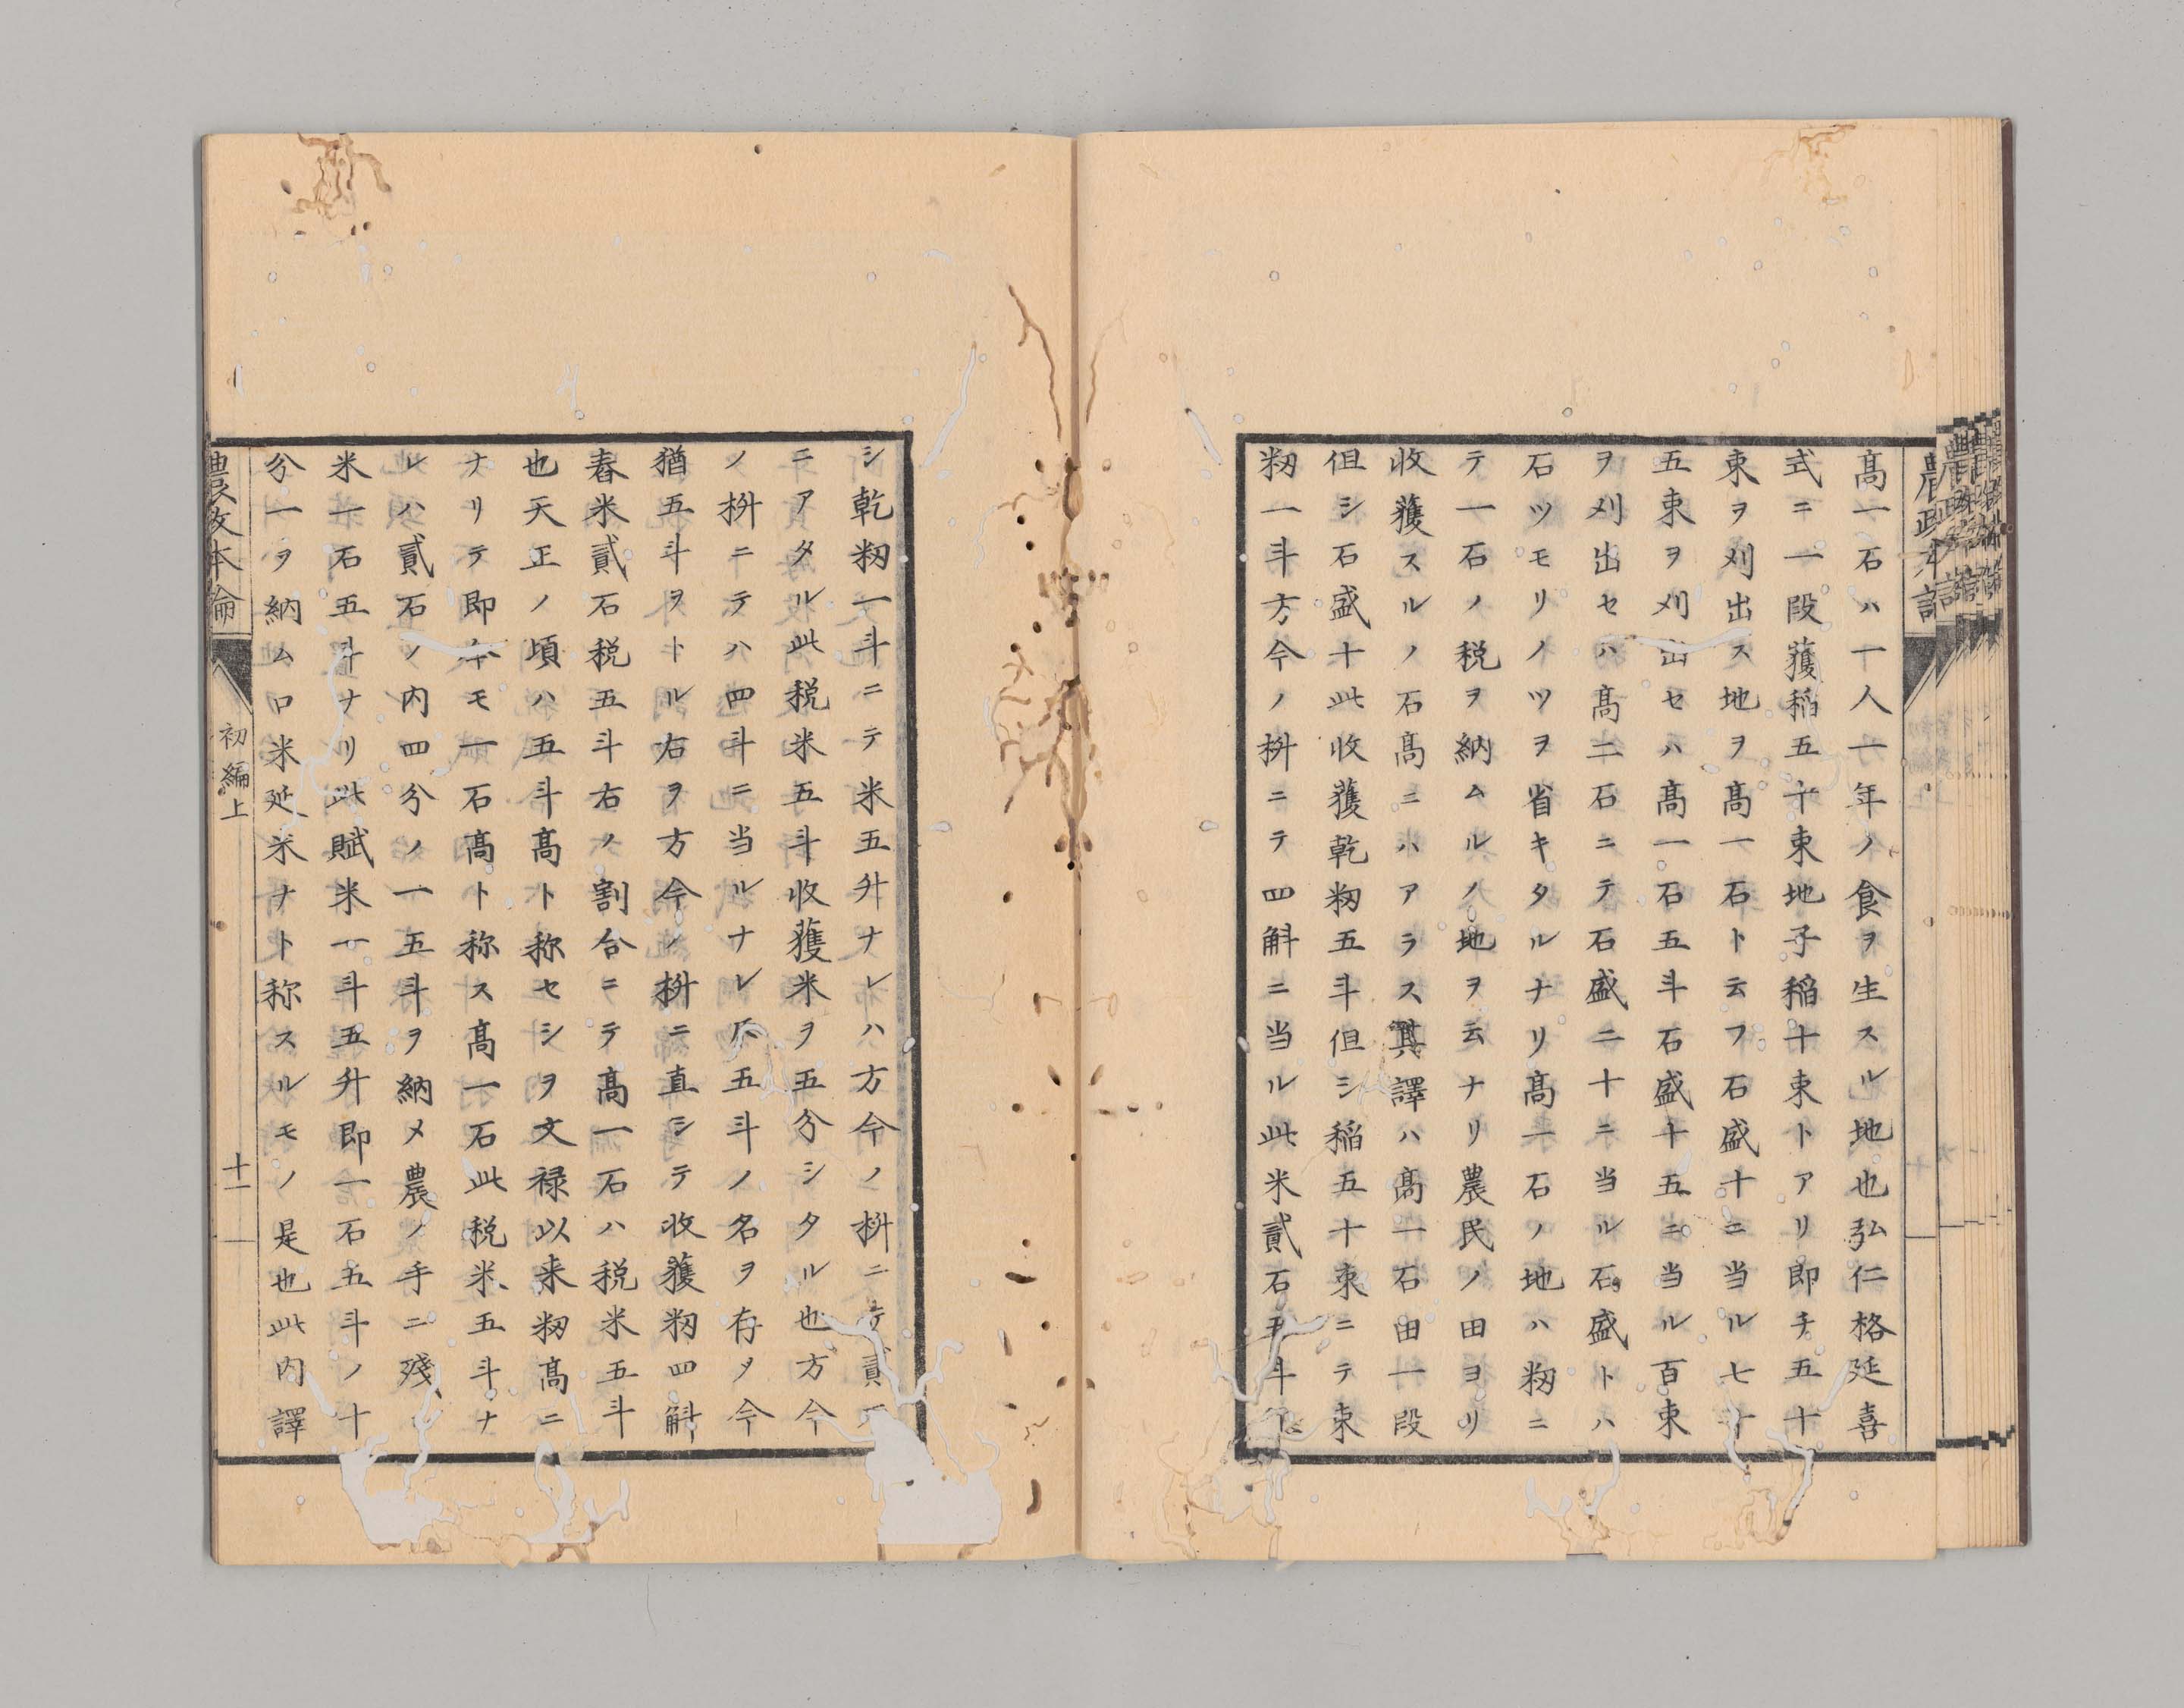 高一石ハ一人一年ノ食ヲ生スル地也弘仁格延喜
式ニ一段穫稲五十束地子稲十束トアリ即チ五十
束ヲ刈出ス地ヲ高一石ト云フ石盛十ニ当ル七十
五束ヲ刈出セハ高一石五斗石盛十五ニ当ル百束
ヲ刈出セハ高二石ニテ石盛二十ニ当ル石盛トハ
石ツモリノツヲ省キタルナリ高一石ノ地ハ籾ニ
テ一石ノ税ヲ納ムルノ地ヲ云ナリ農民ノ田ヨリ
收穫スルノ石高ニハアラス其譯ハ高一石田一段
但シ石盛十此收穫乾籾五斗但シ稲五十束ニテ束
籾一斗方今ノ枡ニテ四斛ニ当ル此米貳石五斗
シ乾籾一斗ニテ米五升ナレハ方今ノ枡ニテ貳
ニアタル此税米五斗收穫米ヲ五分シタル也方今
ノ枡ニテハ四斗ニ当ルナレ𪜈五斗ノ名ヲ存メ今
猶五斗ヲトル右ヲ方今ノ枡ニ直シテ收穫籾四斛
舂米貳石税五斗右ノ割合ニテ高一石ハ税米五斗
也天正ノ頃ハ五斗高ト称セシヲ文禄以来籾高ニ
ナリテ即今モ一石高ト称ス高一石此税米五斗ナ
レハ貳石ノ内四分ノ一五斗ヲ納メ農ノ手ニ殘
米一石五斗ナリ此賦米一斗五升即一石五斗ノ十
分一ヲ納ム口米延米ナト称スルモノ是也此内譯
農政本論
初編上
十一